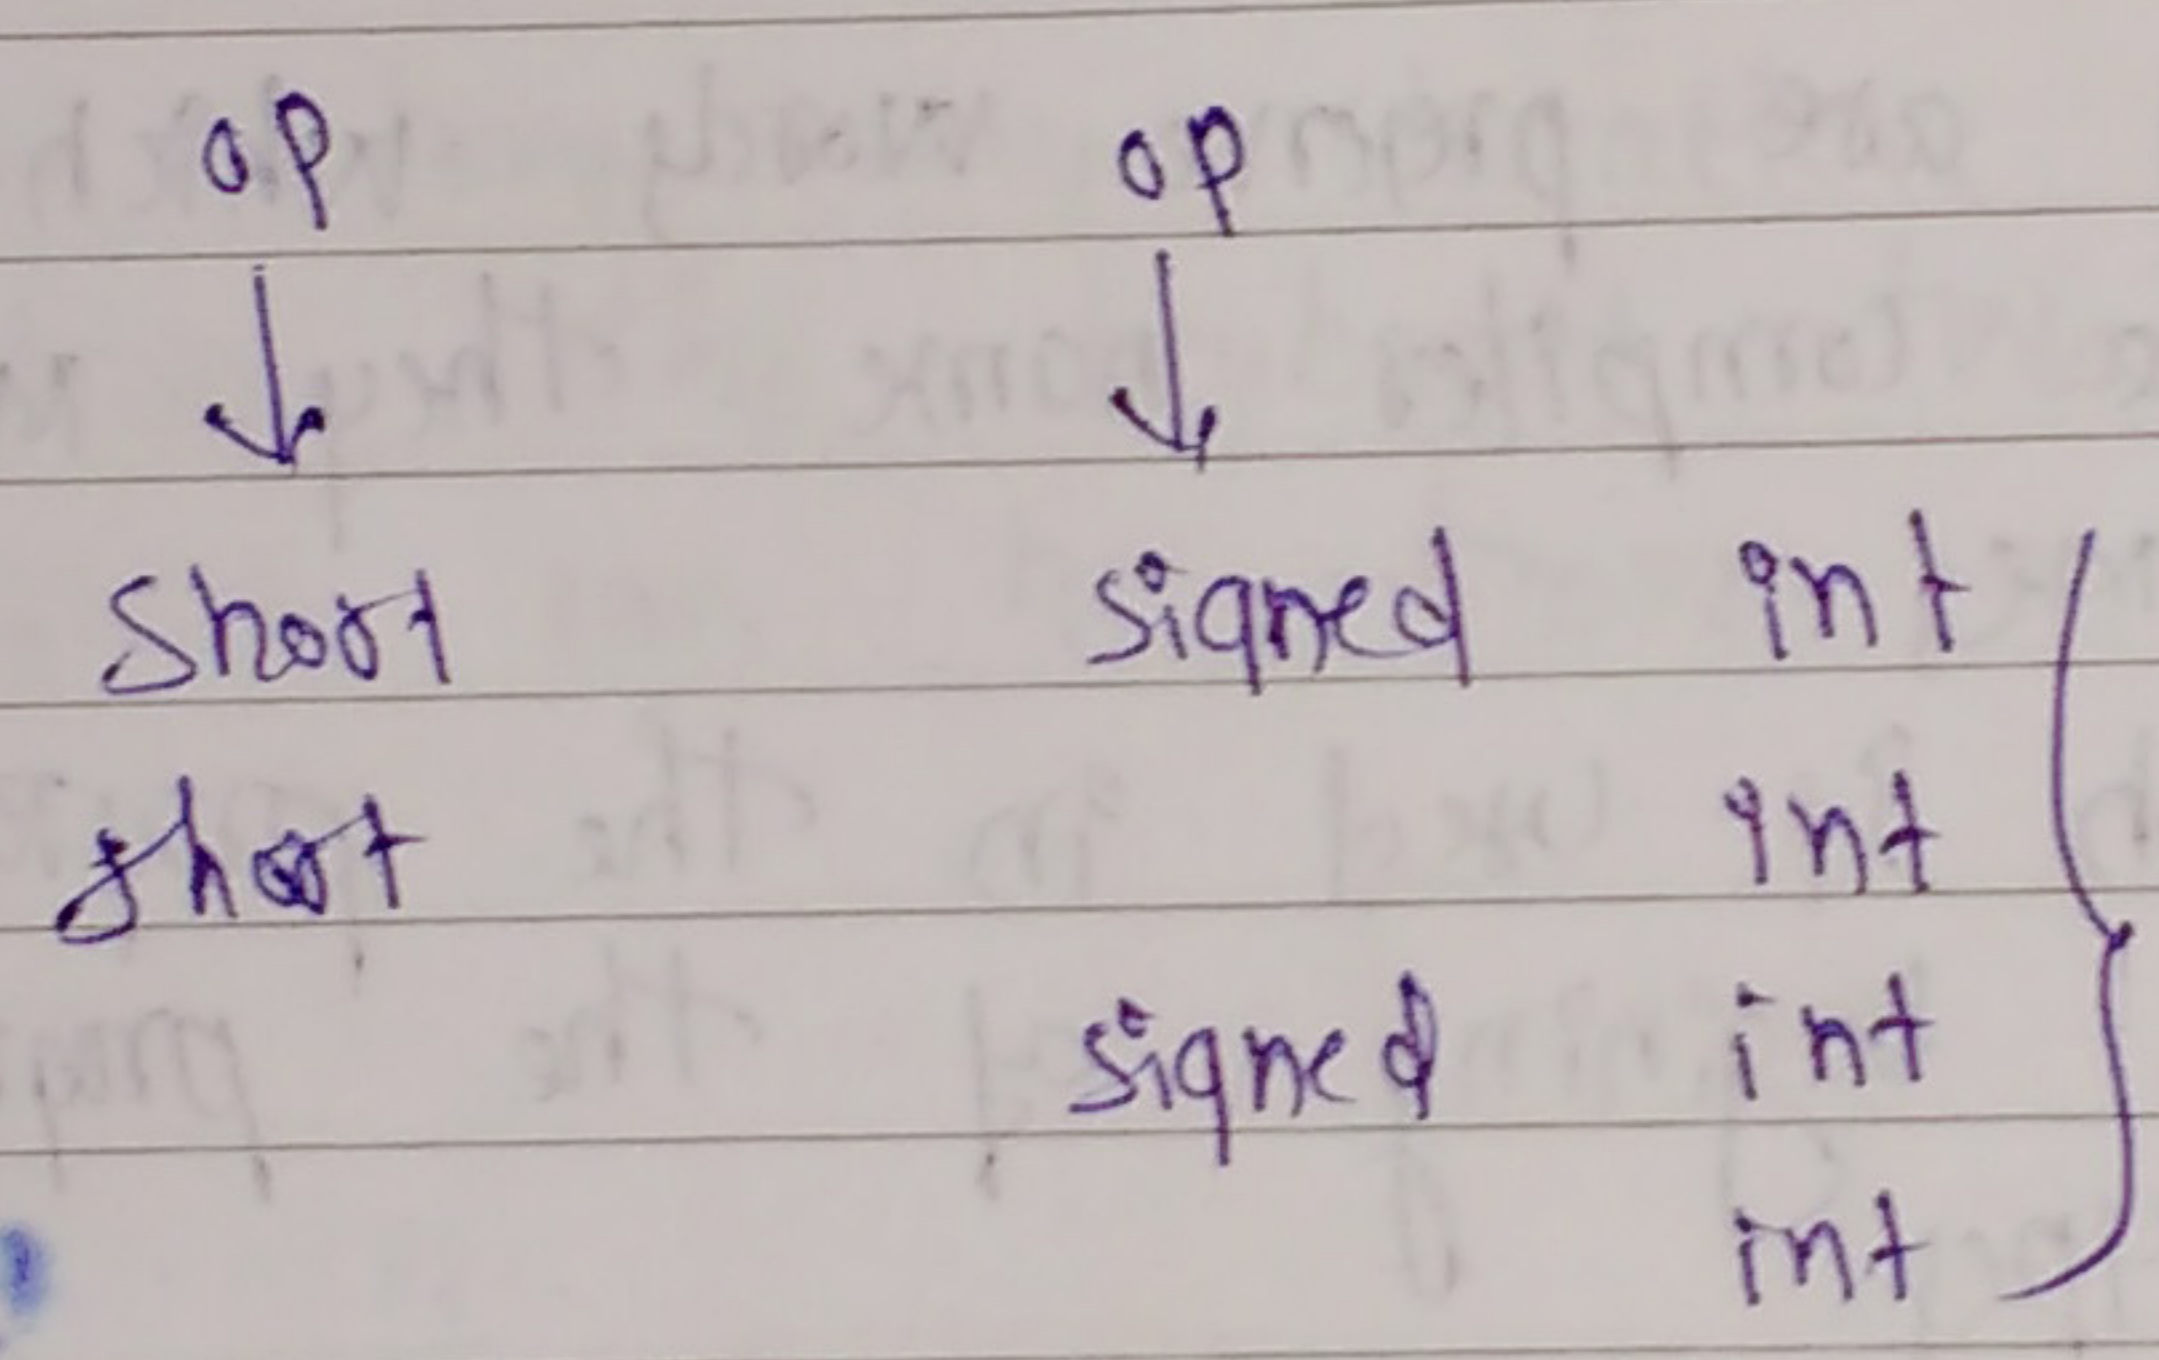 op op
↓ ↓
Short signed int
short int
signed int
int